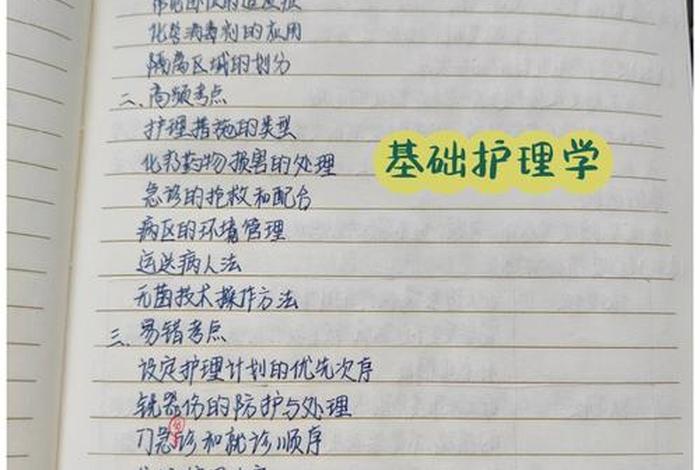 化学消毒剂的应用
隔离区域的划分
二、高频考点
护理措施的类型
化疗药物损害的处理
基础护理学
急诊的抢救和配合
病区的环境管理
运送病人法
无菌技术操作方法
三、易错考点
设定护理计划的优先次序
锐器伤的防护与处理
门急诊和就诊顺序